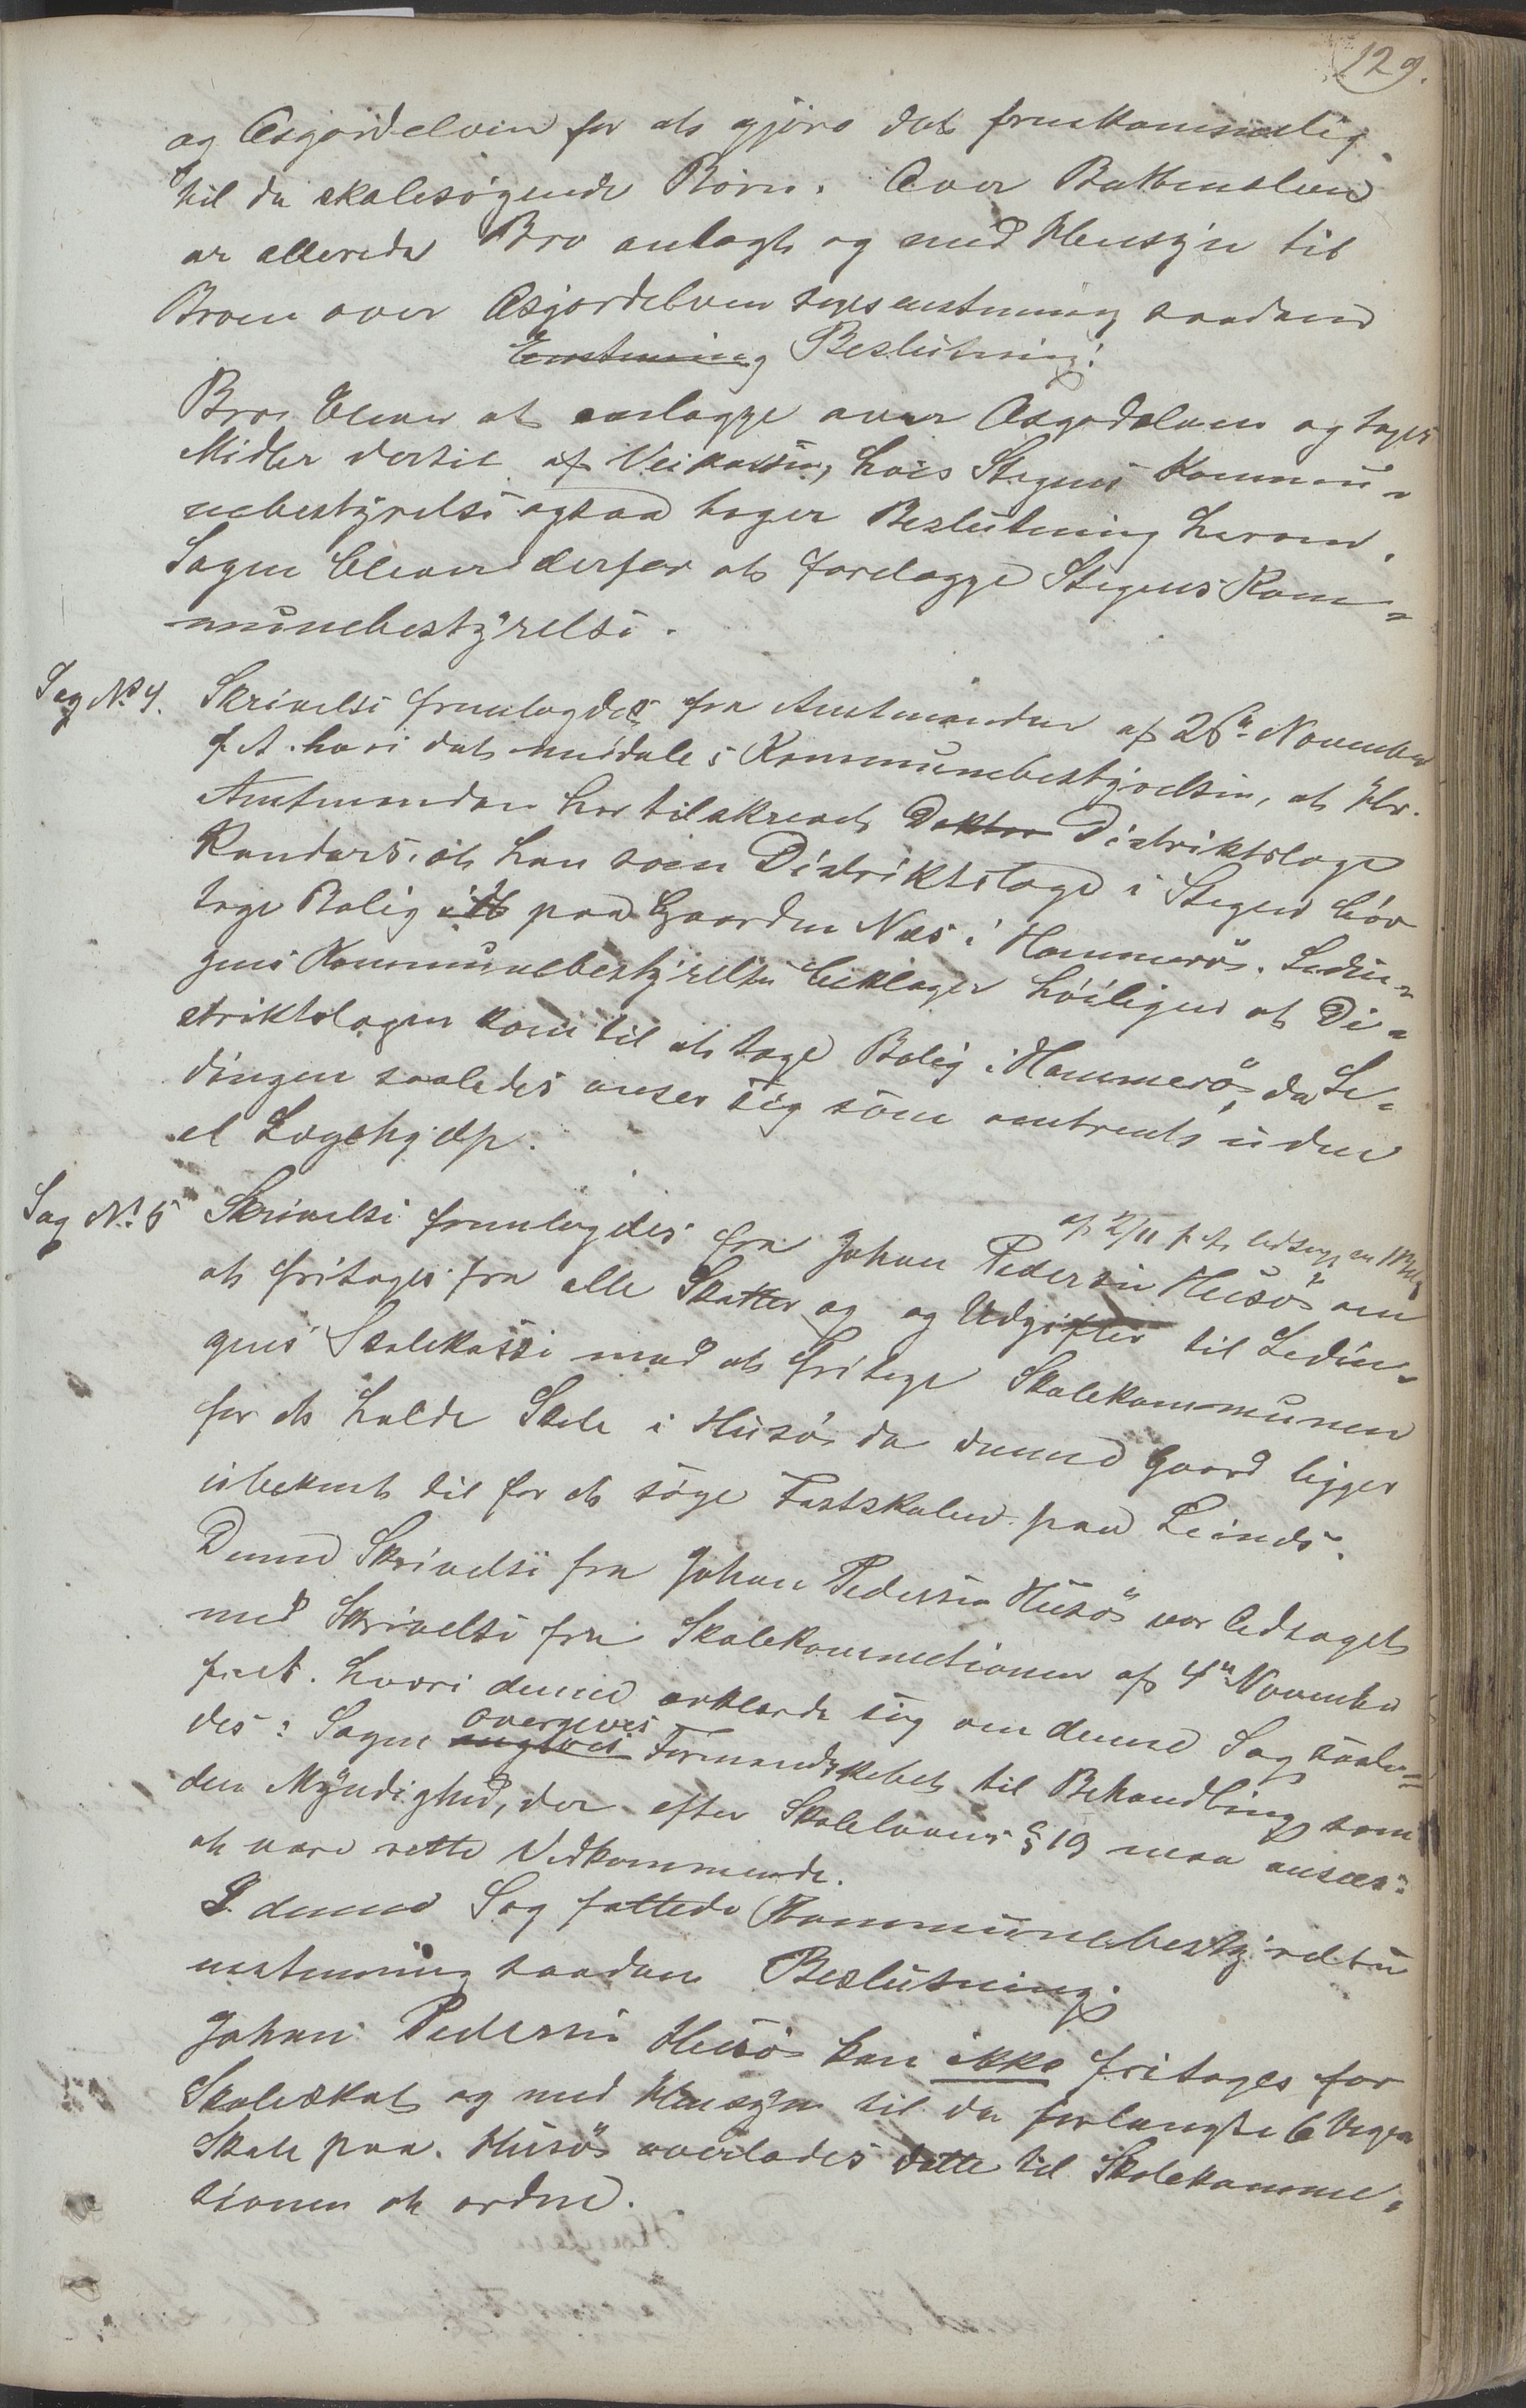 129.
og Æsgordelven for at gjøre det fremkommelig
til de skolesøgende Børn. Over Bottenelven
er allerede Bro anlagt og med Hensyn til
Broen over Æsgordelven toges enstemmig saadan
Enstemmig Beslutning:
Bro bliver at anlægge over Æsgordelven og tages
Midler dertil af Veikassen, hvis Stegens Kommu-
nebestyrelse ogsaa tager Beslutning herom.
Sagen bliver derfor at forelægge Stegens Kom-
munebestyrelse.
Sag No 4. Skrivelse fremlagdes fra Amtmanden af 26de November
f. A. hvori det meddeles Kommunebestyrelsen, at Hr.
Amtmanden har tilskrevet Doktor Distriktslæge
Randers, at han som Distriktslæge i Stegen bør
tage Bolig paa Gaarden Næs i Hammerø. Ledin-
gens Kommunebestyrelse beklager høiligen at Di-
striktslægen kom til at tage Bolig i Hammerø, da Le-
dingen saaledes anser sig som omtrent uden
al Lægehjælp.
Sag No 5 Skrivelse fremlagdes fra Johan Pedersen Husø om
af 2/11 f. A. ledsaget en
at fritages fra alle Skatter og og Udgifter til Ledin-
gens Skolekasse mod at fritage Skolekommunen
for at holde Skole i Husø da denne Gaard ligger
ubekvemt til for at søge Fastskolen paa Leines.
Denne Skrivelse fra Johan Pedersen Husø var ledsaget
med Skrivelse fra Skolekommitionen af 4de November
f. A. hvori denne erklærede sig om denne Sag saale-
des: Sagen overgives Formandskabet til Behandling som
den Myndighed, der efter Skolelovens § 19 maa ansees
at være rette Vedkommende.
I denne Sag fattede Kommunebestyrelsen
enstemmig saadan Beslutning:
Johan Pedersen Husø kan ikke fritages for
Skoleskat og med Hensyn til de forlangte 6 Uger
Skole paa Husø overlades dette til Skolekommi-
sionen at ordne.